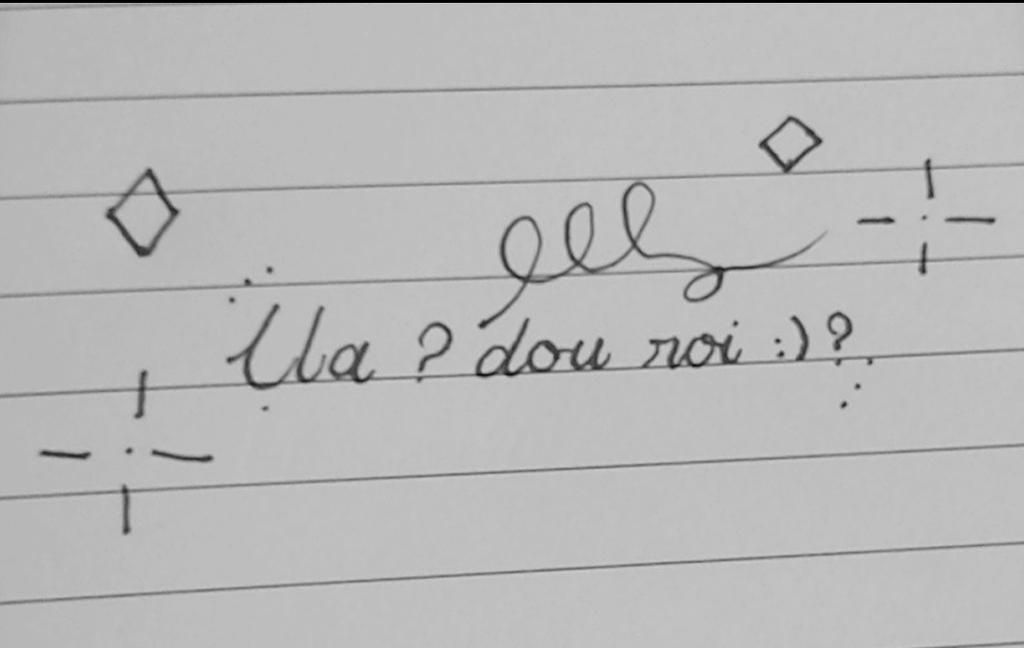 Ula ? dou roi :) ?